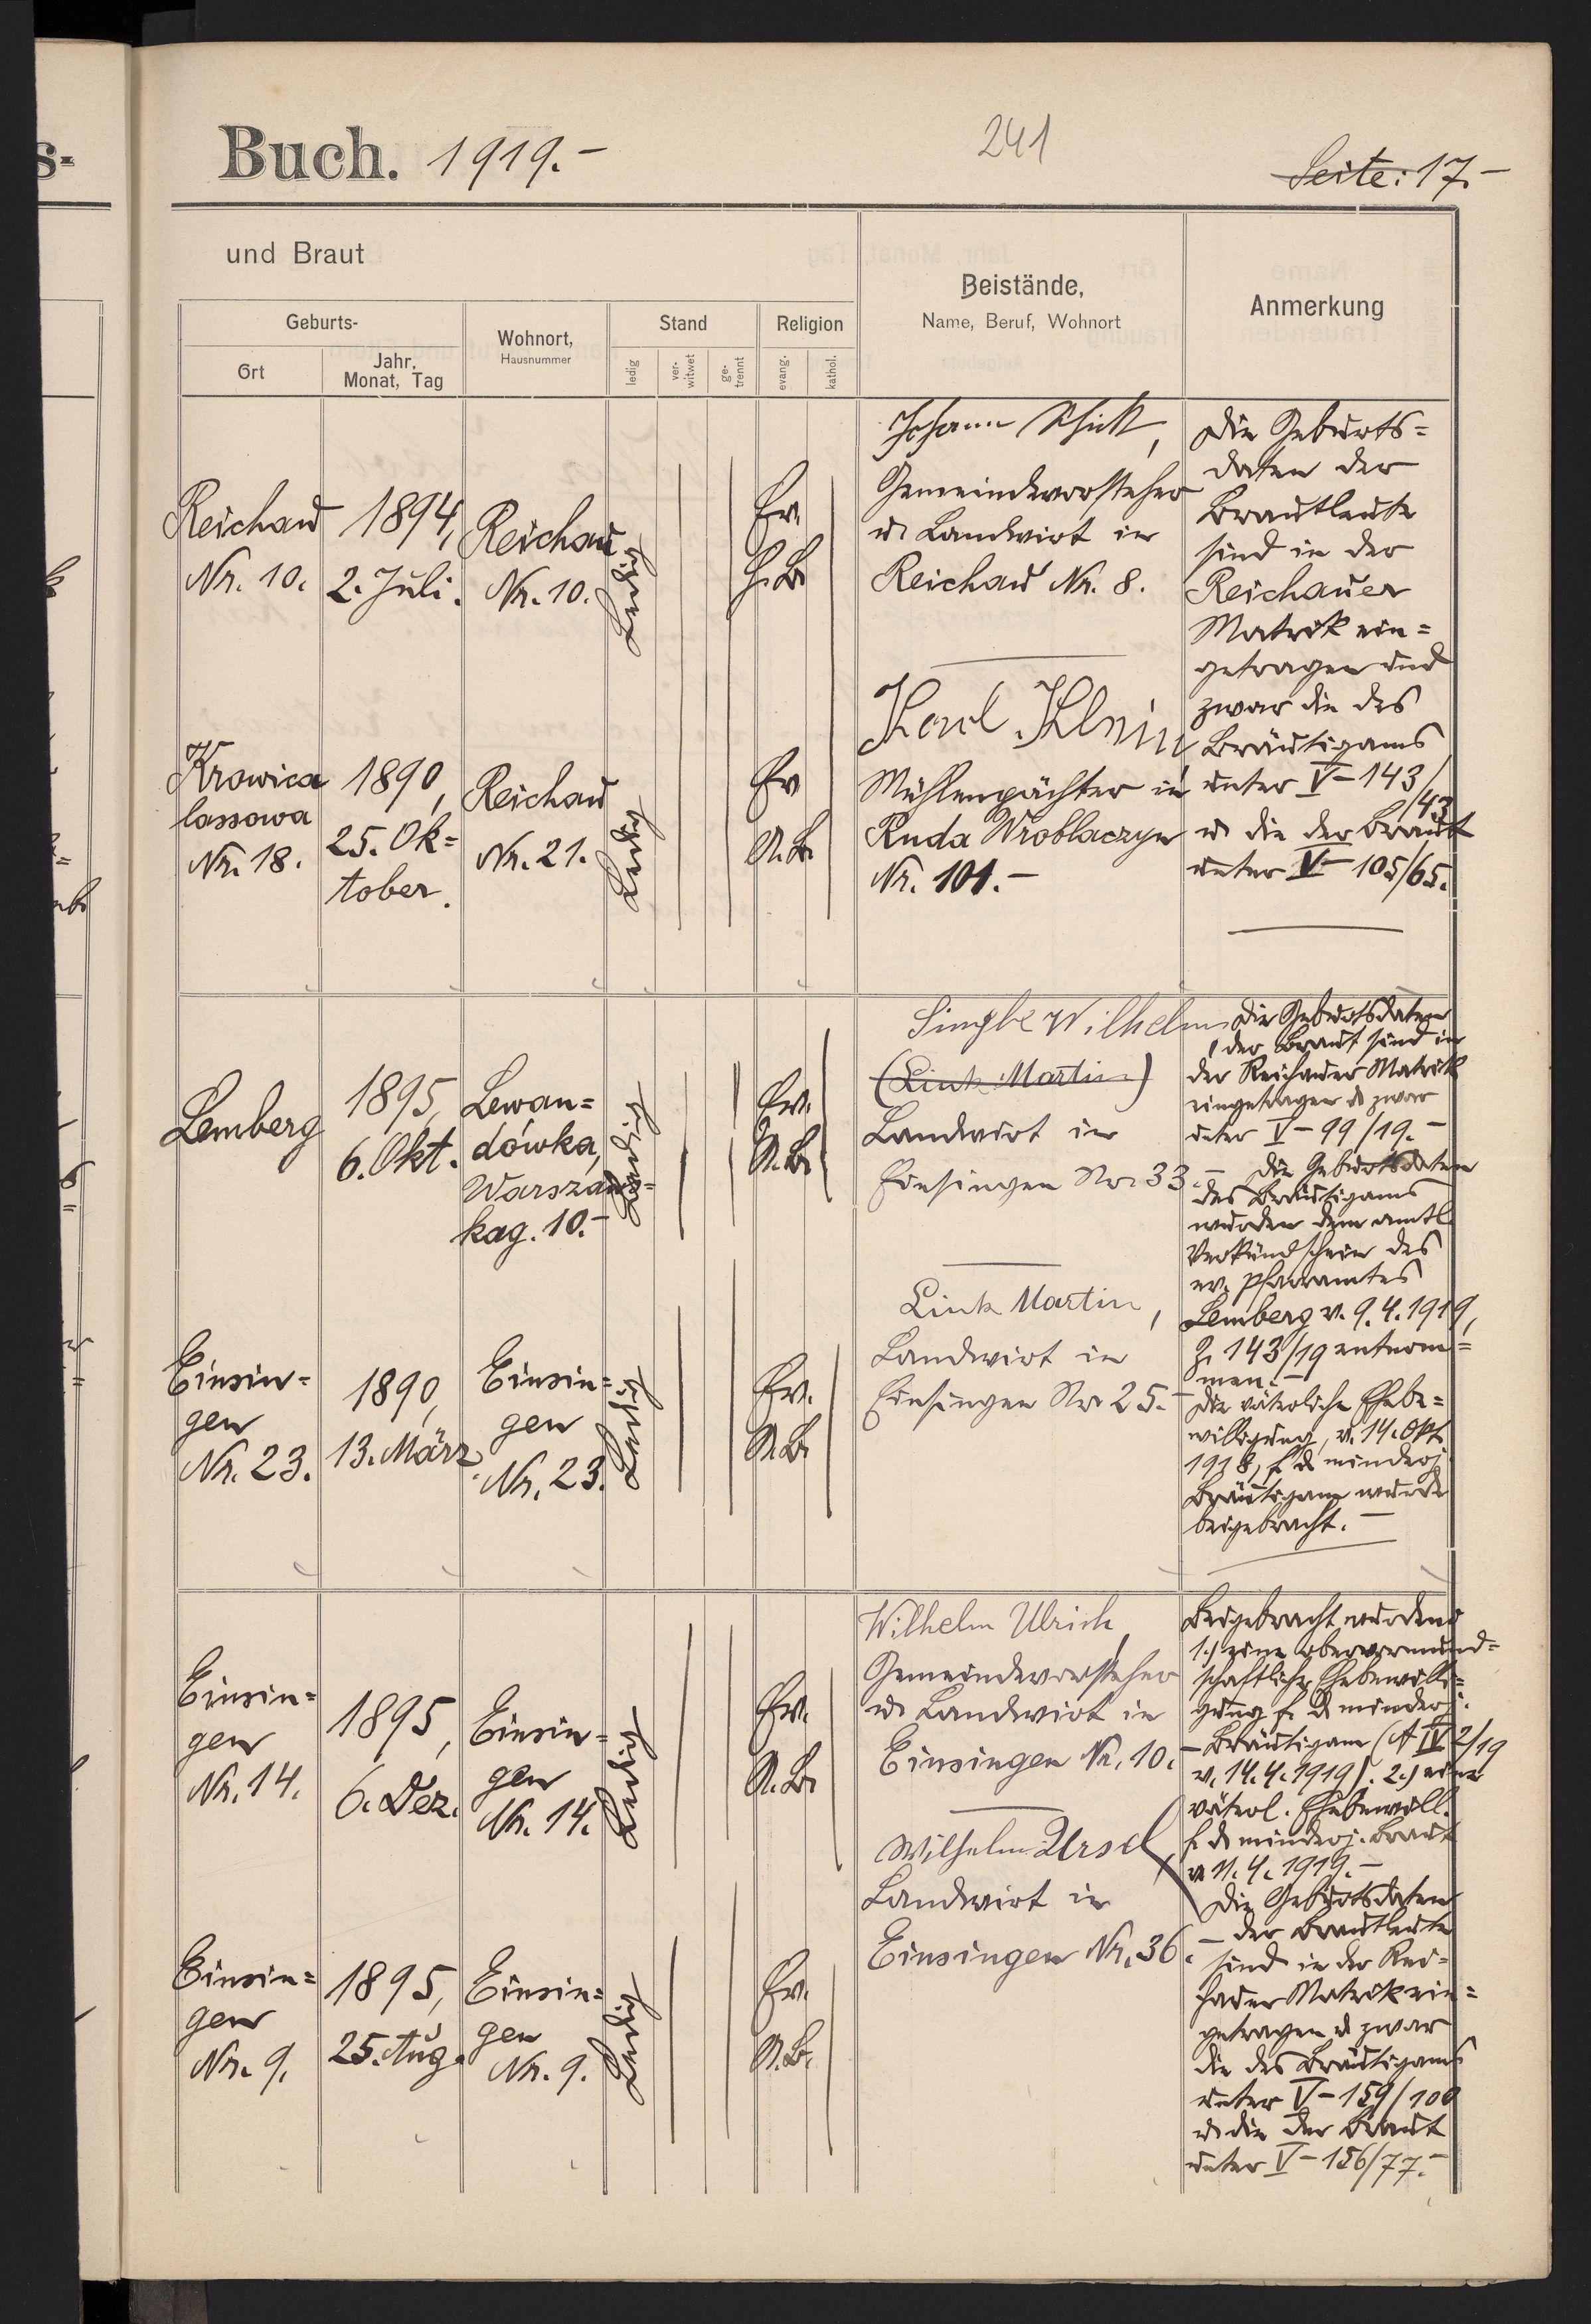 Buch. 1919.-
241
Seite: 17.-
und Braut
Geburts-
Ort
Jahr,
Monat, Tag
Wohnort,
Hausnummer
Stand
ledig
ver-
witwet
ge-
trennt
Religion
evang.
kathol.
Beistände,
Name, Beruf, Wohnort
Anmerkung
Reichau
Nr. 10.
1894,
2. Juli.
Reichau
Nr. 10.
Ledig
Ev.
H.B.
Johann Schick,
Gemeindevorsteher
u. Landwirt in
Reichau Nr. 8.
Die Geburts=
daten der
Brautleute
sind in der
Reichauer
Matrik ein=
getragen und
zwar die des
Bräutigams
unter V-143/
/43
u. die der Braut
unter V-105/65.
Krowica
lassowa
Nr. 18.
1890,
25. Ok=
tober.
Reichau
Nr. 21.
Ledig
Ev
A.B.
Karl Klein,
Mühlenpächter in
Ruda Wroblaczyn
Nr. 101.-
Lemberg
1895,
6. Okt.
Lewan=
dówka,
Warszaw=
kag. 10.-
Ledig
Ev.
A.B.
Singbe Wilhelm
(Link Martin)
Landwirt in
Einsingen Nr. 33.-
Die Geburtsdaten
der Braut sind in
der Reichauer Matrik
eingetragen u. zwar
unter V-99/19.-
Die Geburtsdaten
des Bräutigams
wurden dem amtl.
Verkündschein des
ev. Pfarramtes
Lemberg v. 9.4.1919,
Z. 143/19 entnom=
men.-
Die väterliche Ehebe=
willigung, v. 14. Okt.
1918, f. d. minderj.
Bräutigam wurde
beigebracht.-
Einsin=
gen
Nr. 23.
1890,
13. März
Einsin=
gen
Nr. 23.
Ledig
Ev.
A.B.
Link Martin,
Landwirt in
Einsingen Nr. 25.-
Einsin=
gen
Nr. 14.
1895,
6. Dez.
Einsin=
gen
Nr. 14.
Ledig
Ev.
A.B.
Wilhelm Ulrich,
Gemeindevorsteher
u. Landwirt in
Einsingen Nr. 10.
Beigebracht wurden:
1.) eine obervormund=
schaftliche Ehebewilli=
gung f. d. minderj.
Bräutigam (A IV 2/19
v. 14.4.1919). 2.) eine
väterl. Ehebewill.
f. d. minderj. Braut
v. 11.4.1919.-
Die Geburtsdaten
der Brautleute
sind in der Rei=
chauer Matrik ein=
getragen u. zwar
die des Bräutigams
unter V-159/100
u. die der Braut
unter V-156/77.-
Einsin=
gen
Nr. 9.
1895,
25. Aug.
Einsin=
gen
Nr. 9.
Ledig
Ev.
A.B.
Wilhelm Ursel,
Landwirt in
Einsingen Nr. 36.